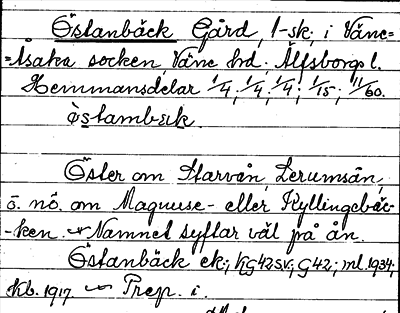 Östanbäck Gård, 1-sk; i Väne=
=Åsaka socken, Väne hd. Älfsborgs l.
Hemmansdelar 1/4; 1/4; 1/4; 1/15; 11/60.
östambɛk.
Öster om Starvån, Lerumsån,
ö. nö. om Magnuse- eller Kyllingebäc-
-ken. Namnet syftar väl på ån.
Östanbäck ek.; KG42sv.; G42; ml. 1934;
Kb. 1917. Prep. i.